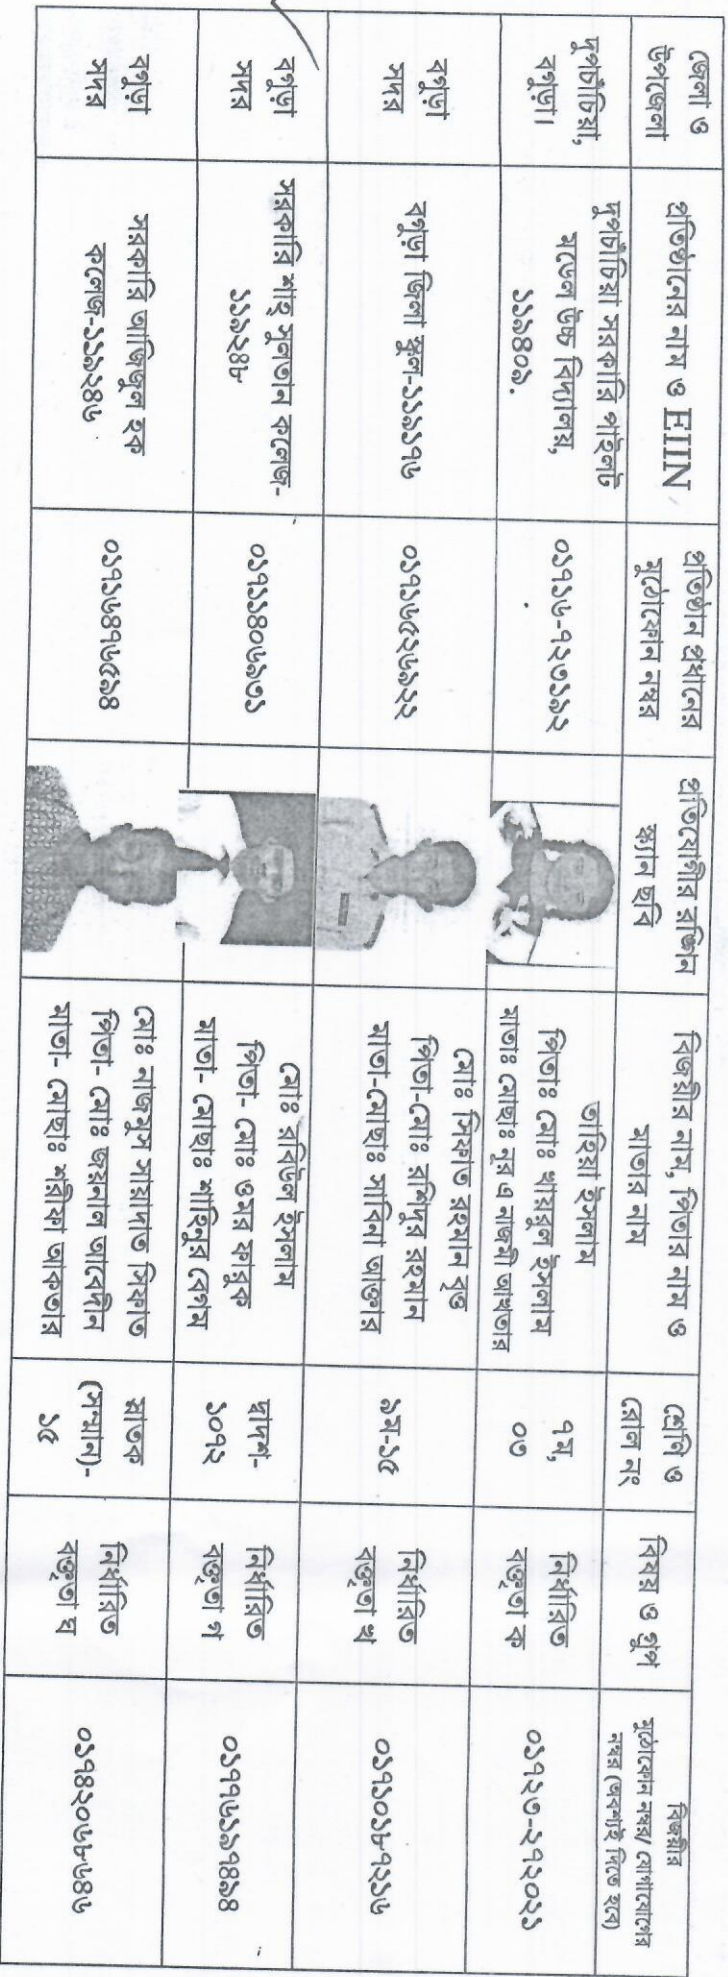 জেলা ও
উপজেলা
প্রতিষ্ঠানের নাম ও EIIN
প্রতিষ্ঠান প্রধানের
মুঠোফোন নম্বর
প্রতিযোগীর রঙ্গিন
স্ক্যান ছবি
বিজয়ীর নাম, পিতার নাম ও
মাতার নাম
শ্রেণি ও
রোল নং
বিষয় ও গ্রুপ
বিজয়ীর
মুঠোফোন নম্বর/ যোগাযোগের
নম্বর (অবশ্যই দিতে হবে)
দুপচাঁচিয়া,
বগুড়া।
দুপচাঁচিয়া সরকারি পাইলট
মডেল উচ্চ বিদ্যালয়,
১১৯৪০৯.
০১৭১৬-৭২৩১৯২
তাহিয়া ইসলাম
পিতাঃ মোঃ খায়রুল ইসলাম
মাতাঃ মোছাঃ নুর এ নাজনী আখতার
৭ম,
০৩
নির্ধারিত
বক্তৃতা ক
০১৭২৩-২৭২০২১
বগুড়া
সদর
বগুড়া জিলা স্কুল-১১৯১৭৬
০১৭১৬৫২৬৯২২
মোঃ সিফাত রহমান বৃত্ত
পিতা-মোঃ রশিদুর রহমান
মাতা-মোছাঃ সাবিনা আক্তার
৯ম-১৫
নির্ধারিত
বক্তৃতা খ
০১৭১০১৮৭২১৬
বগুড়া
সদর
সরকারি শাহ সুলতান কলেজ-
১১৯২৪৮
০১৭১১৪০৬৯৩১
মোঃ রবিউল ইসলাম
পিতা- মোঃ ওমর ফারুক
মাতা- মোছাঃ শাহিনুর বেগম
দ্বাদশ-
১০৭২
নির্ধারিত
বক্তৃতা গ
০১৭৭৬১৯৭৪৯৪
বগুড়া
সদর
সরকারি আজিজুল হক
কলেজ-১১৯২৪৬
০১৭১৬৪৭৬৫৯৪
মোঃ নাজমুস সায়াদাত সিফাত
পিতা- মোঃ জয়নাল আবেদীন
মাতা- মোছাঃ শরীফা আকতার
স্নাতক
(সম্মান)-
১৫
নির্ধারিত
বক্তৃতা ঘ
০১৭৪২০৬৮৬৪৬